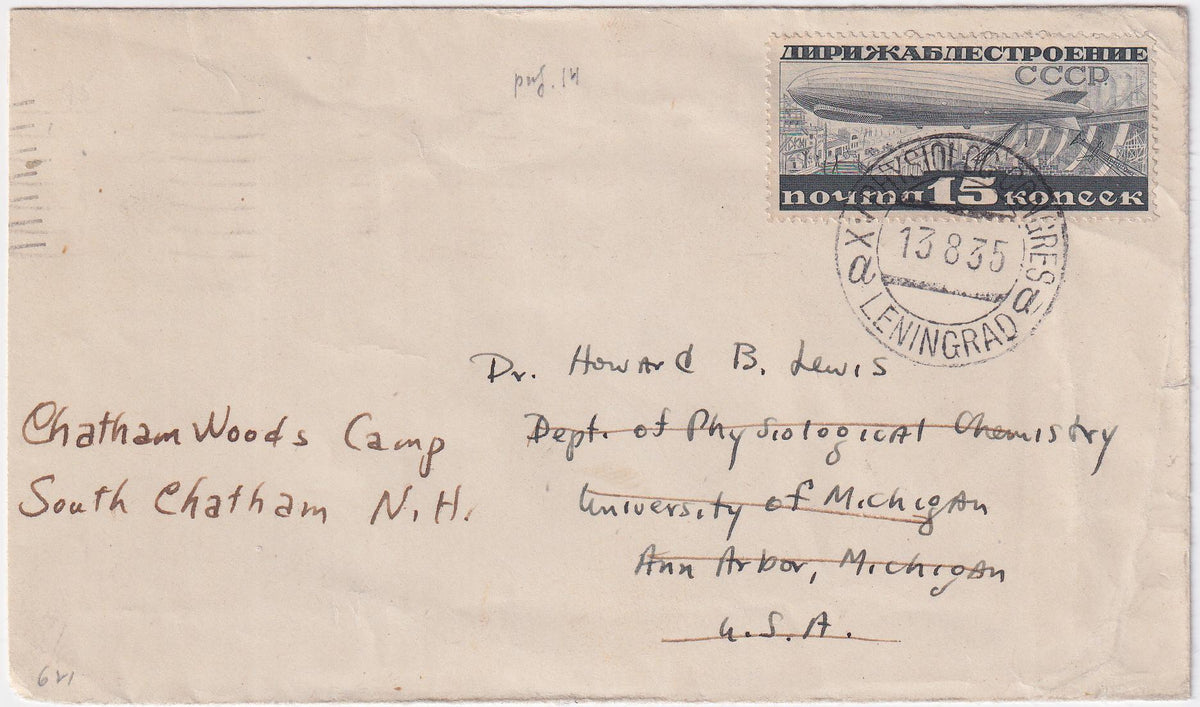 рис. 14
ДИРИЖАБЛЕСТРОЕНИЕ
СССР
почта 15 копеек
XV PHYSIOLOG. CONGRES
13 8 35
a LENINGRAD a
Dr. Howard B. Lewis
Dept. of Physiological Chemistry
University of Michigan
Ann Arbor, Michigan
U.S.A.
Chatham Woods Camp
South Chatham N.H.